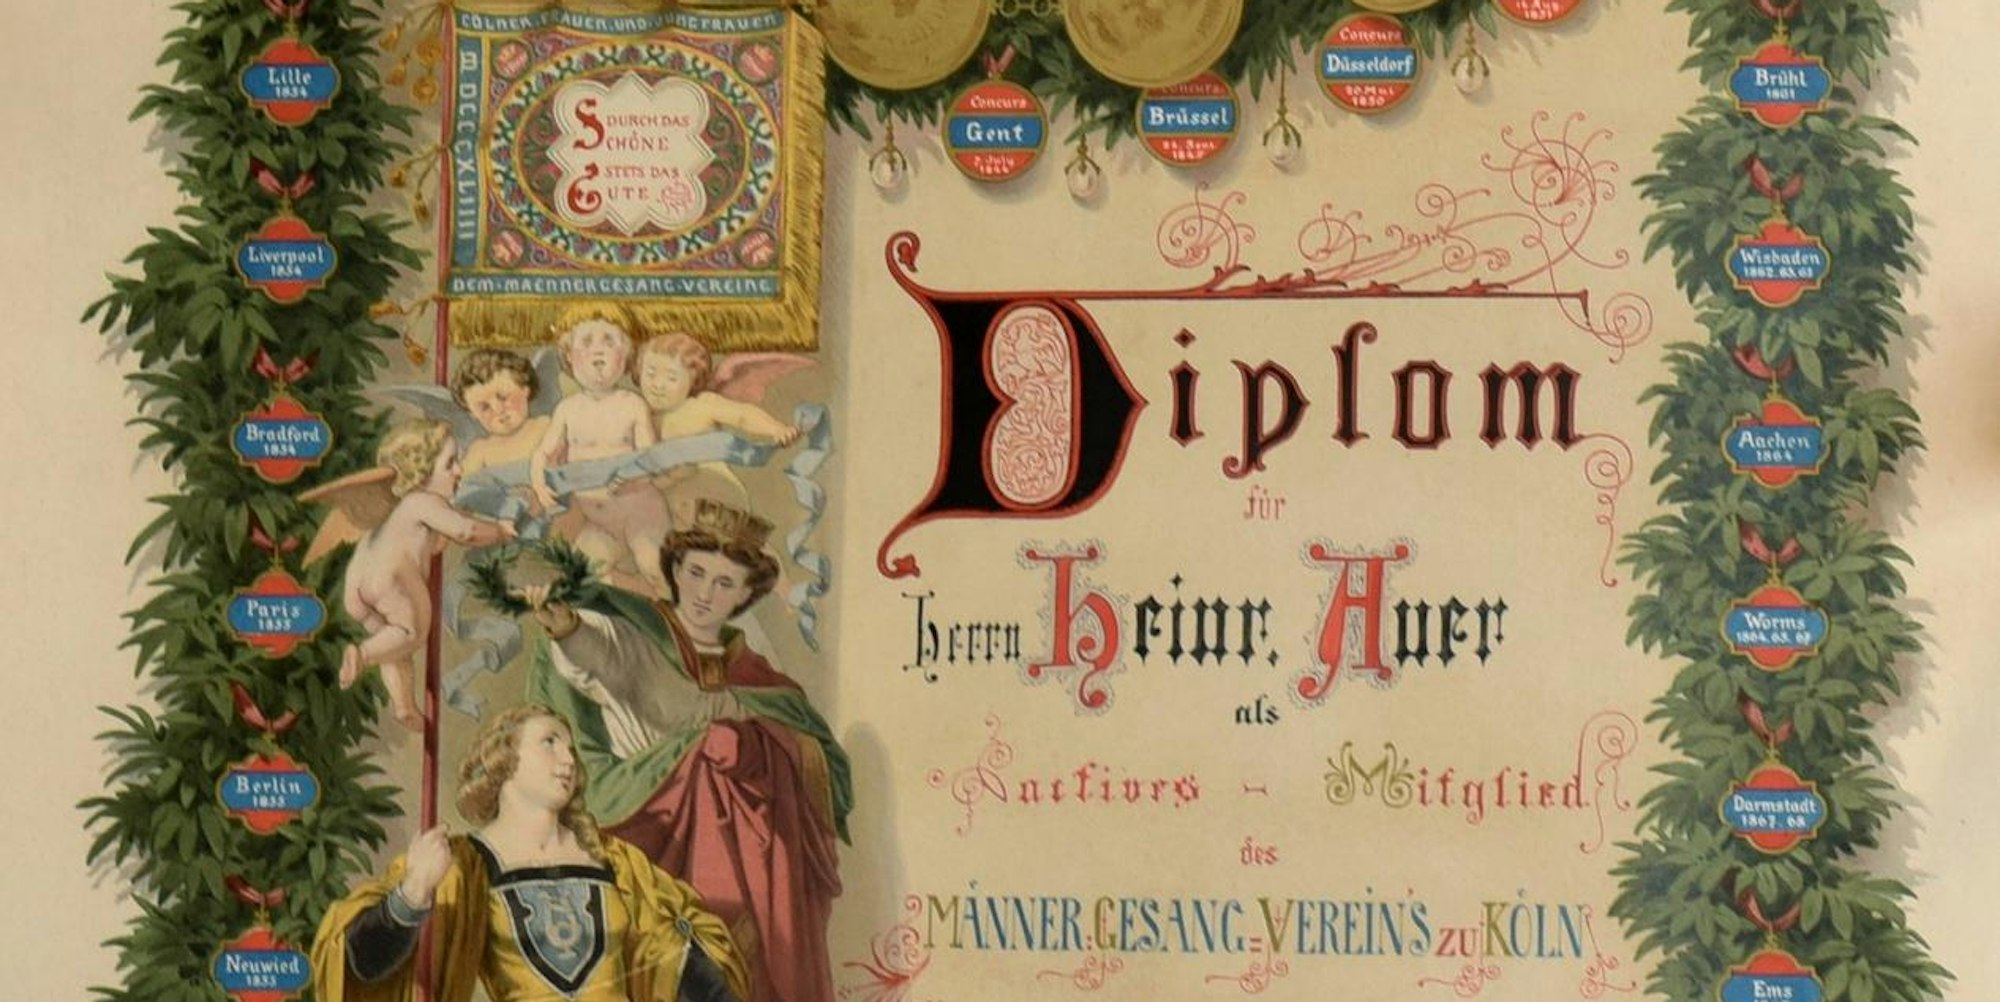 CÖLNER FRAUEN UND JUNGFRAUEN
MDCCCXLIIII
DURCH DAS
SCHÖNE
STETS DAS
GUTE
DEM MAENNERGESANG VEREINE
Lille
1854
Liverpool
1854
Bradford
1854
Paris
1855
Berlin
1855
Neuwied
1855
Concurs
Gent
7. July
1844
Concurs
Brüssel
1845
Concurs
Düsseldorf
20. Mai
1850
1851
Brühl
1861
Wisbaden
1862. 63. 65
Aachen
1864
Worms
1864. 65. 67
Darmstadt
1867. 68
Ems
Diplom
für
Herrn Heinr. Auer
als
Inactives - Mitglied
des
MÄNNER=GESANG=VEREIN'S ZU KÖLN